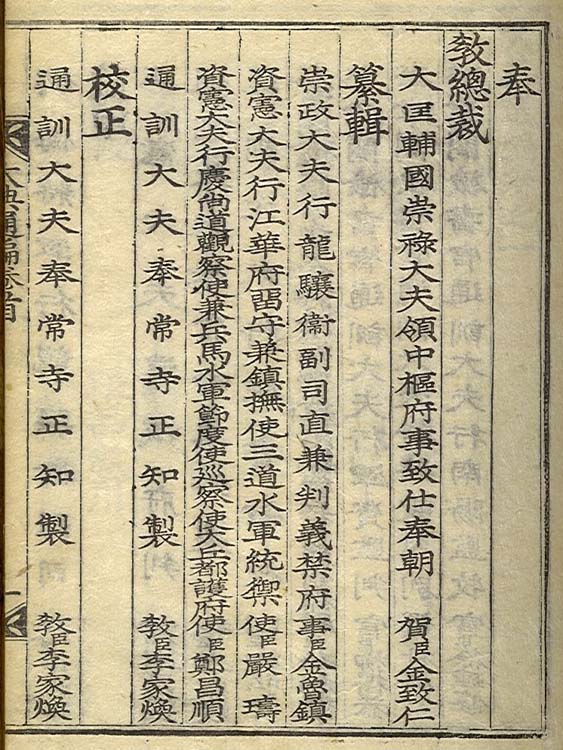 奉
敎總裁
大匡輔國崇祿大夫領中樞府事致仕奉朝賀臣金致仁
纂輯
崇政大夫行龍驤衛副司直兼判義禁府事臣金魯鎭
資憲大夫行江華府留守兼鎭撫使三道水軍統禦使臣嚴璹
資憲大夫行慶尙道觀察使兼兵馬水軍節度使巡察使大丘都護府使臣鄭昌順
通訓大夫奉常寺正知製敎臣李家煥
校正
通訓大夫奉常寺正知製敎臣李家煥
大典通編卷首
一